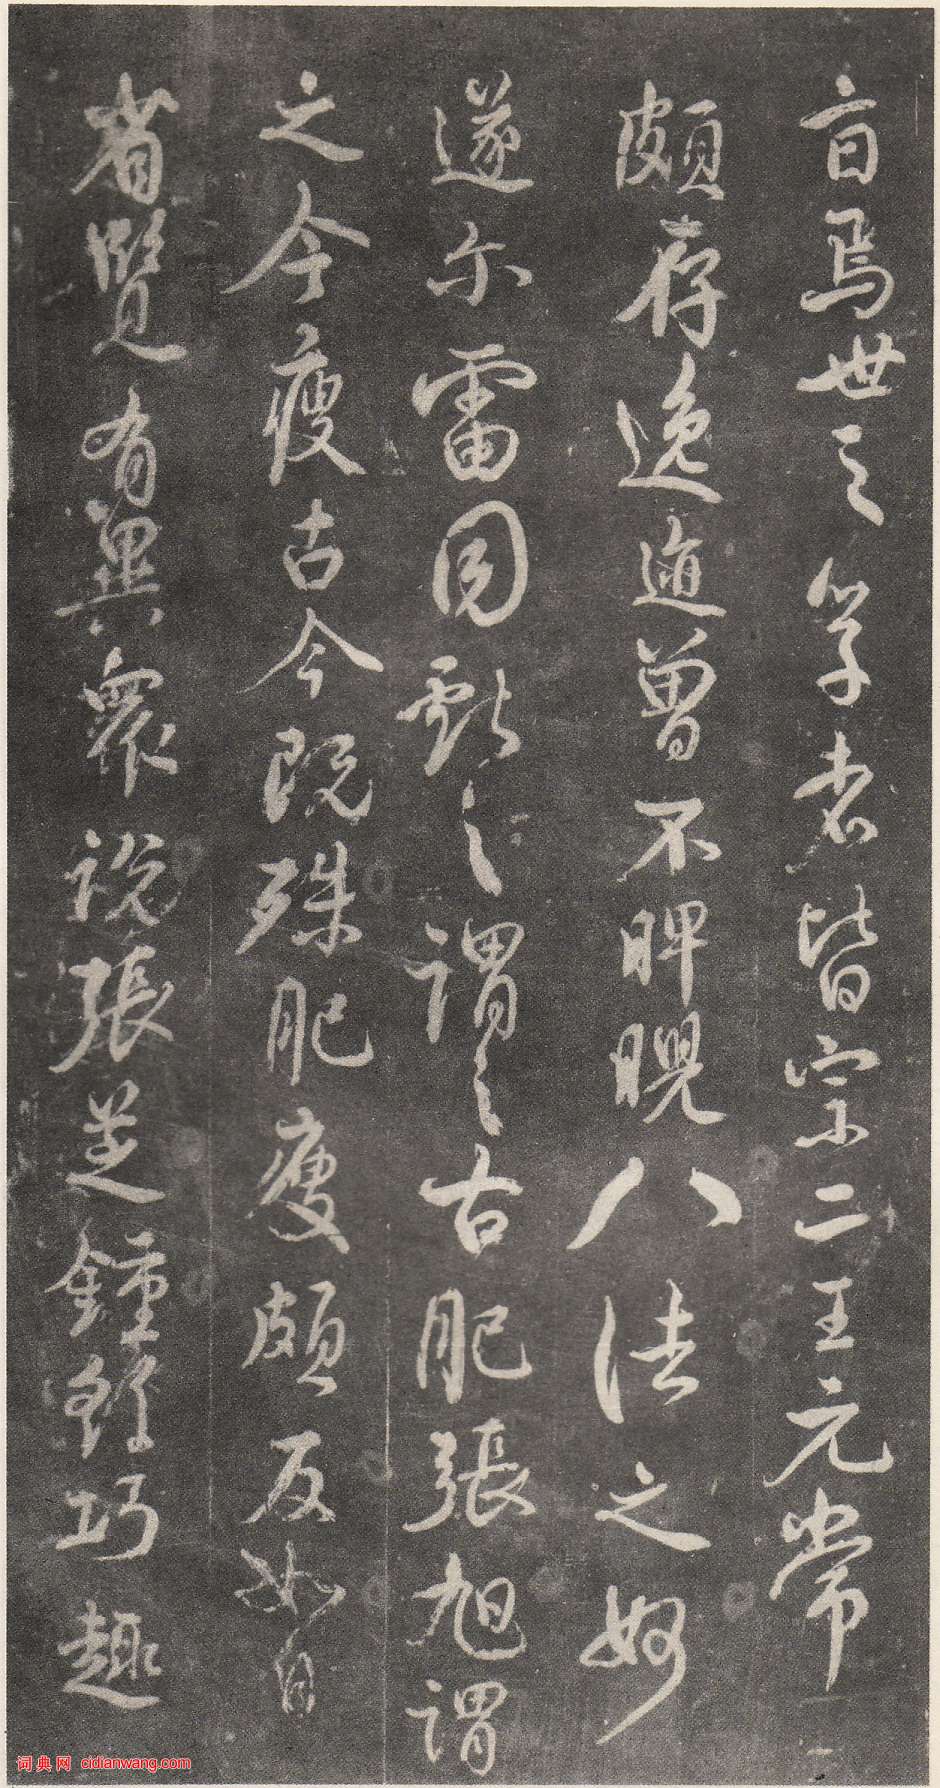 焉世之學者皆宗二王元常
頗存逸迹曾不睥睨八法之妙
遂尔雷同獻之謂之古肥張旭謂
之今瘦古今既殊肥瘦頗反如自
省覽有異衆說張芝鍾繇巧趣
词典网 cidianwang.com